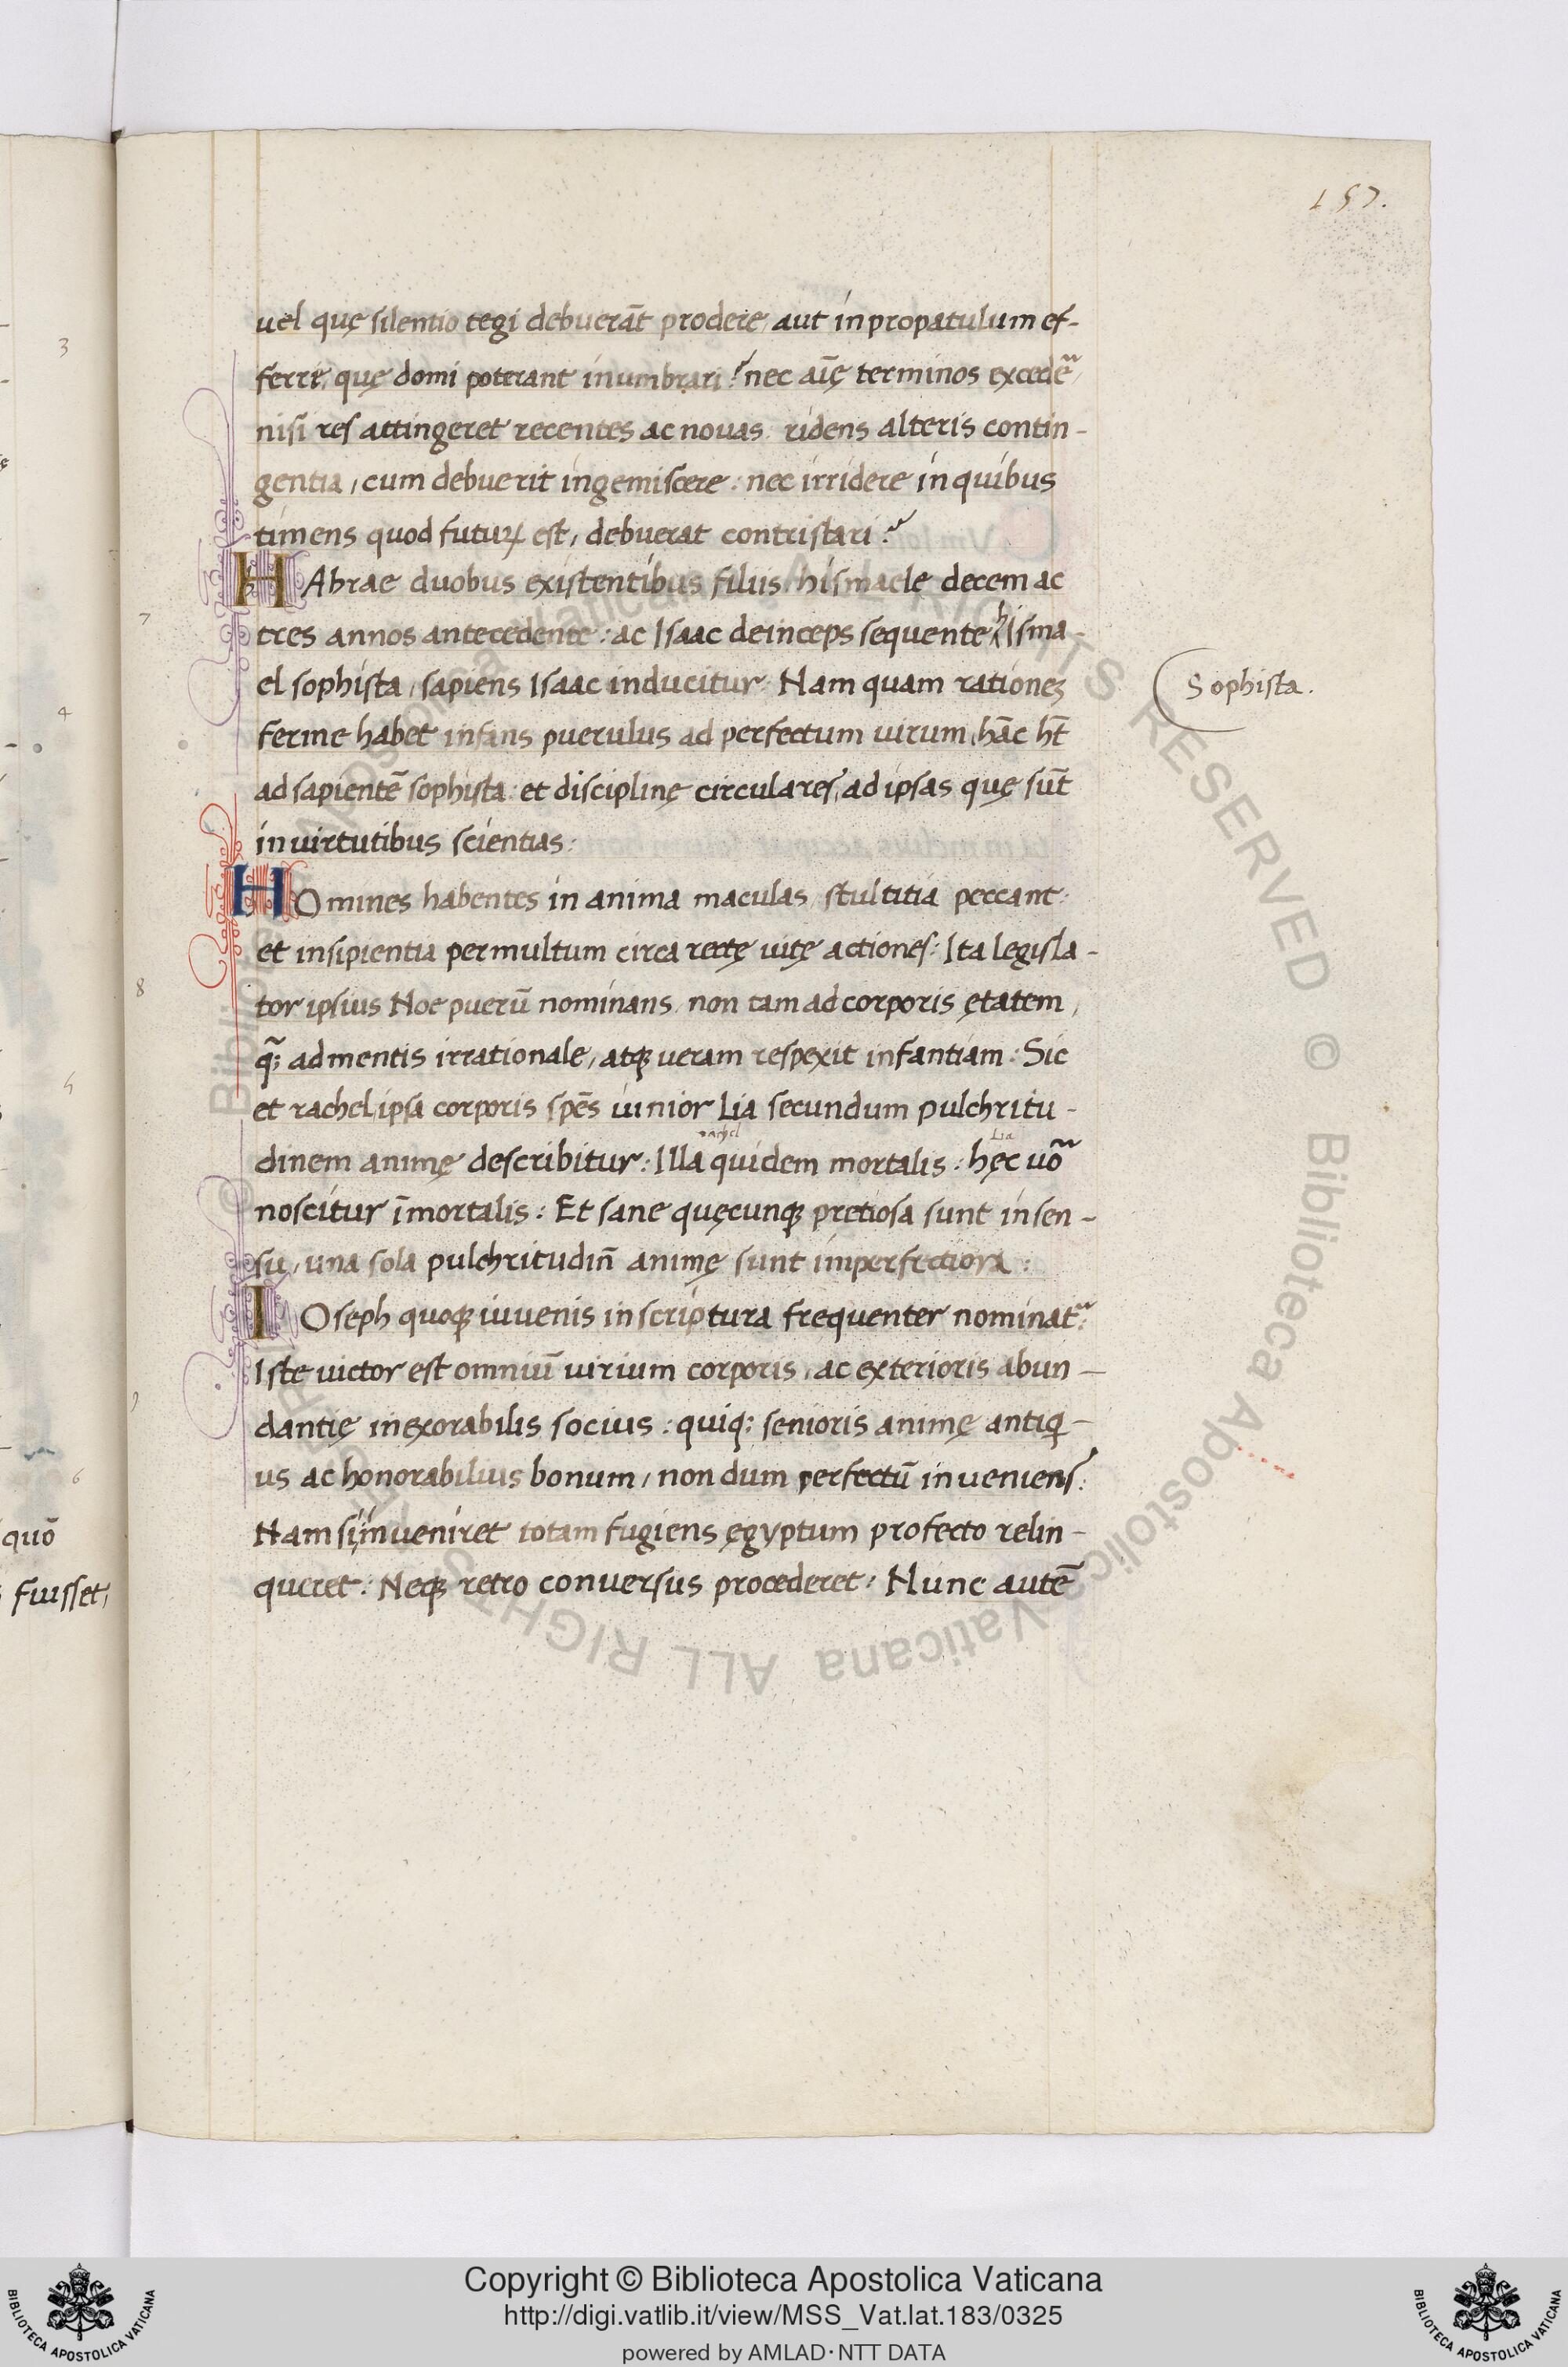 157.
uel quę silentio tegi debuerāt prodere, aut in propatulum ef-
ferre, quę domi poterant inumbrari? nec aīę terminos excedẽ,
nisi res attingeret recentes ac nouas: ridens alteris contin-
gentia, cum debuerit ingemiscere: nec irridere in quibus
timens quod futurꝝ est, debuerat contristari?
HAbrae duobus existentibus filiis: hismaele decem ac
tres annos antecedente: ac Isaac deinceps sequente: Isma-
el sophista, sapiens Isaac inducitur: Nam quam rationeꝫ
Sophista.
ferme habet infans puerulus ad perfectum uirum, hāc ht̄
ad sapientē sophista: et disciplinę circulares, ad ipsas quę sūt
in uirtutibus scientias:
HOmines habentes in anima maculas, stultitia peccant:
et insipientia permultum circa rectę uitę actiones: Ita legisla-
tor ipsius Noe puerū nominans, non tam ad corporis ętatem,
q̄ꝫ ad mentis irrationale, atqꝫ ueram respexit infantiam: Sic
et rachel ipsa corporis spēs iunior Lia secundum pulchritu-
rachel Lia
dinem animę describitur: Illa quidem mortalis: hęc uõ
noscitur īmortalis: Et sane quęcunqꝫ pretiosa sunt in sen-
su, una sola pulchritudin̄ animę sunt imperfectiora:
IOseph quoqꝫ iuuenis in scriptura frequenter nominat᷑:
Iste uictor est omniū uirium corporis, ac exterioris abun-
dantię inexorabilis socius: quiqꝫ senioris animę antiqi-
us ac honorabilius bonum, non dum perfectū inueniens:
Nam si inueniret totam fugiens ęgyptum profecto relin-
queret: Neqꝫ retro conuersus procederet: Nunc autē
3
7
4
8
5
9
6
quō
fuisset,
© Biblioteca Apostolica Vaticana ALL RIGHTS RESERVED
© Biblioteca Apostolica Vaticana ALL RIGHTS RESERVED
Copyright © Biblioteca Apostolica Vaticana
http://digi.vatlib.it/view/MSS_Vat.lat.183/0325
powered by AMLAD·NTT DATA
BIBLIOTECA APOSTOLICA VATICANA
BIBLIOTECA APOSTOLICA VATICANA